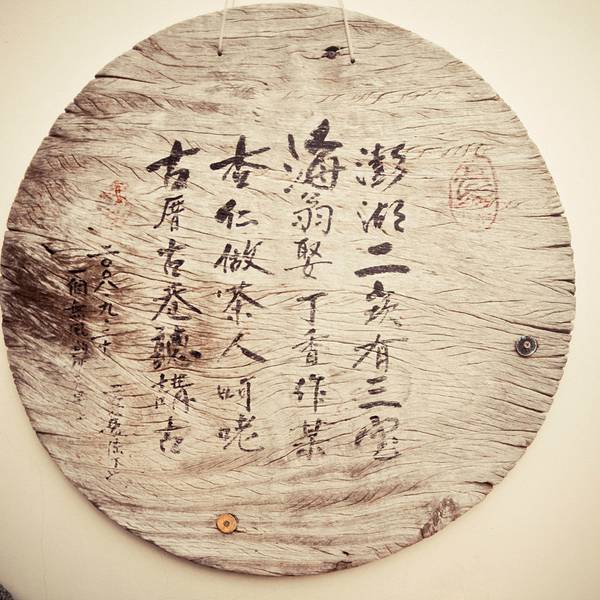 澎湖二崁有三宝
海翁娶丁香作某
杏仁做茶人呵咾
古厝古巷聽講古
二〇〇八九二十